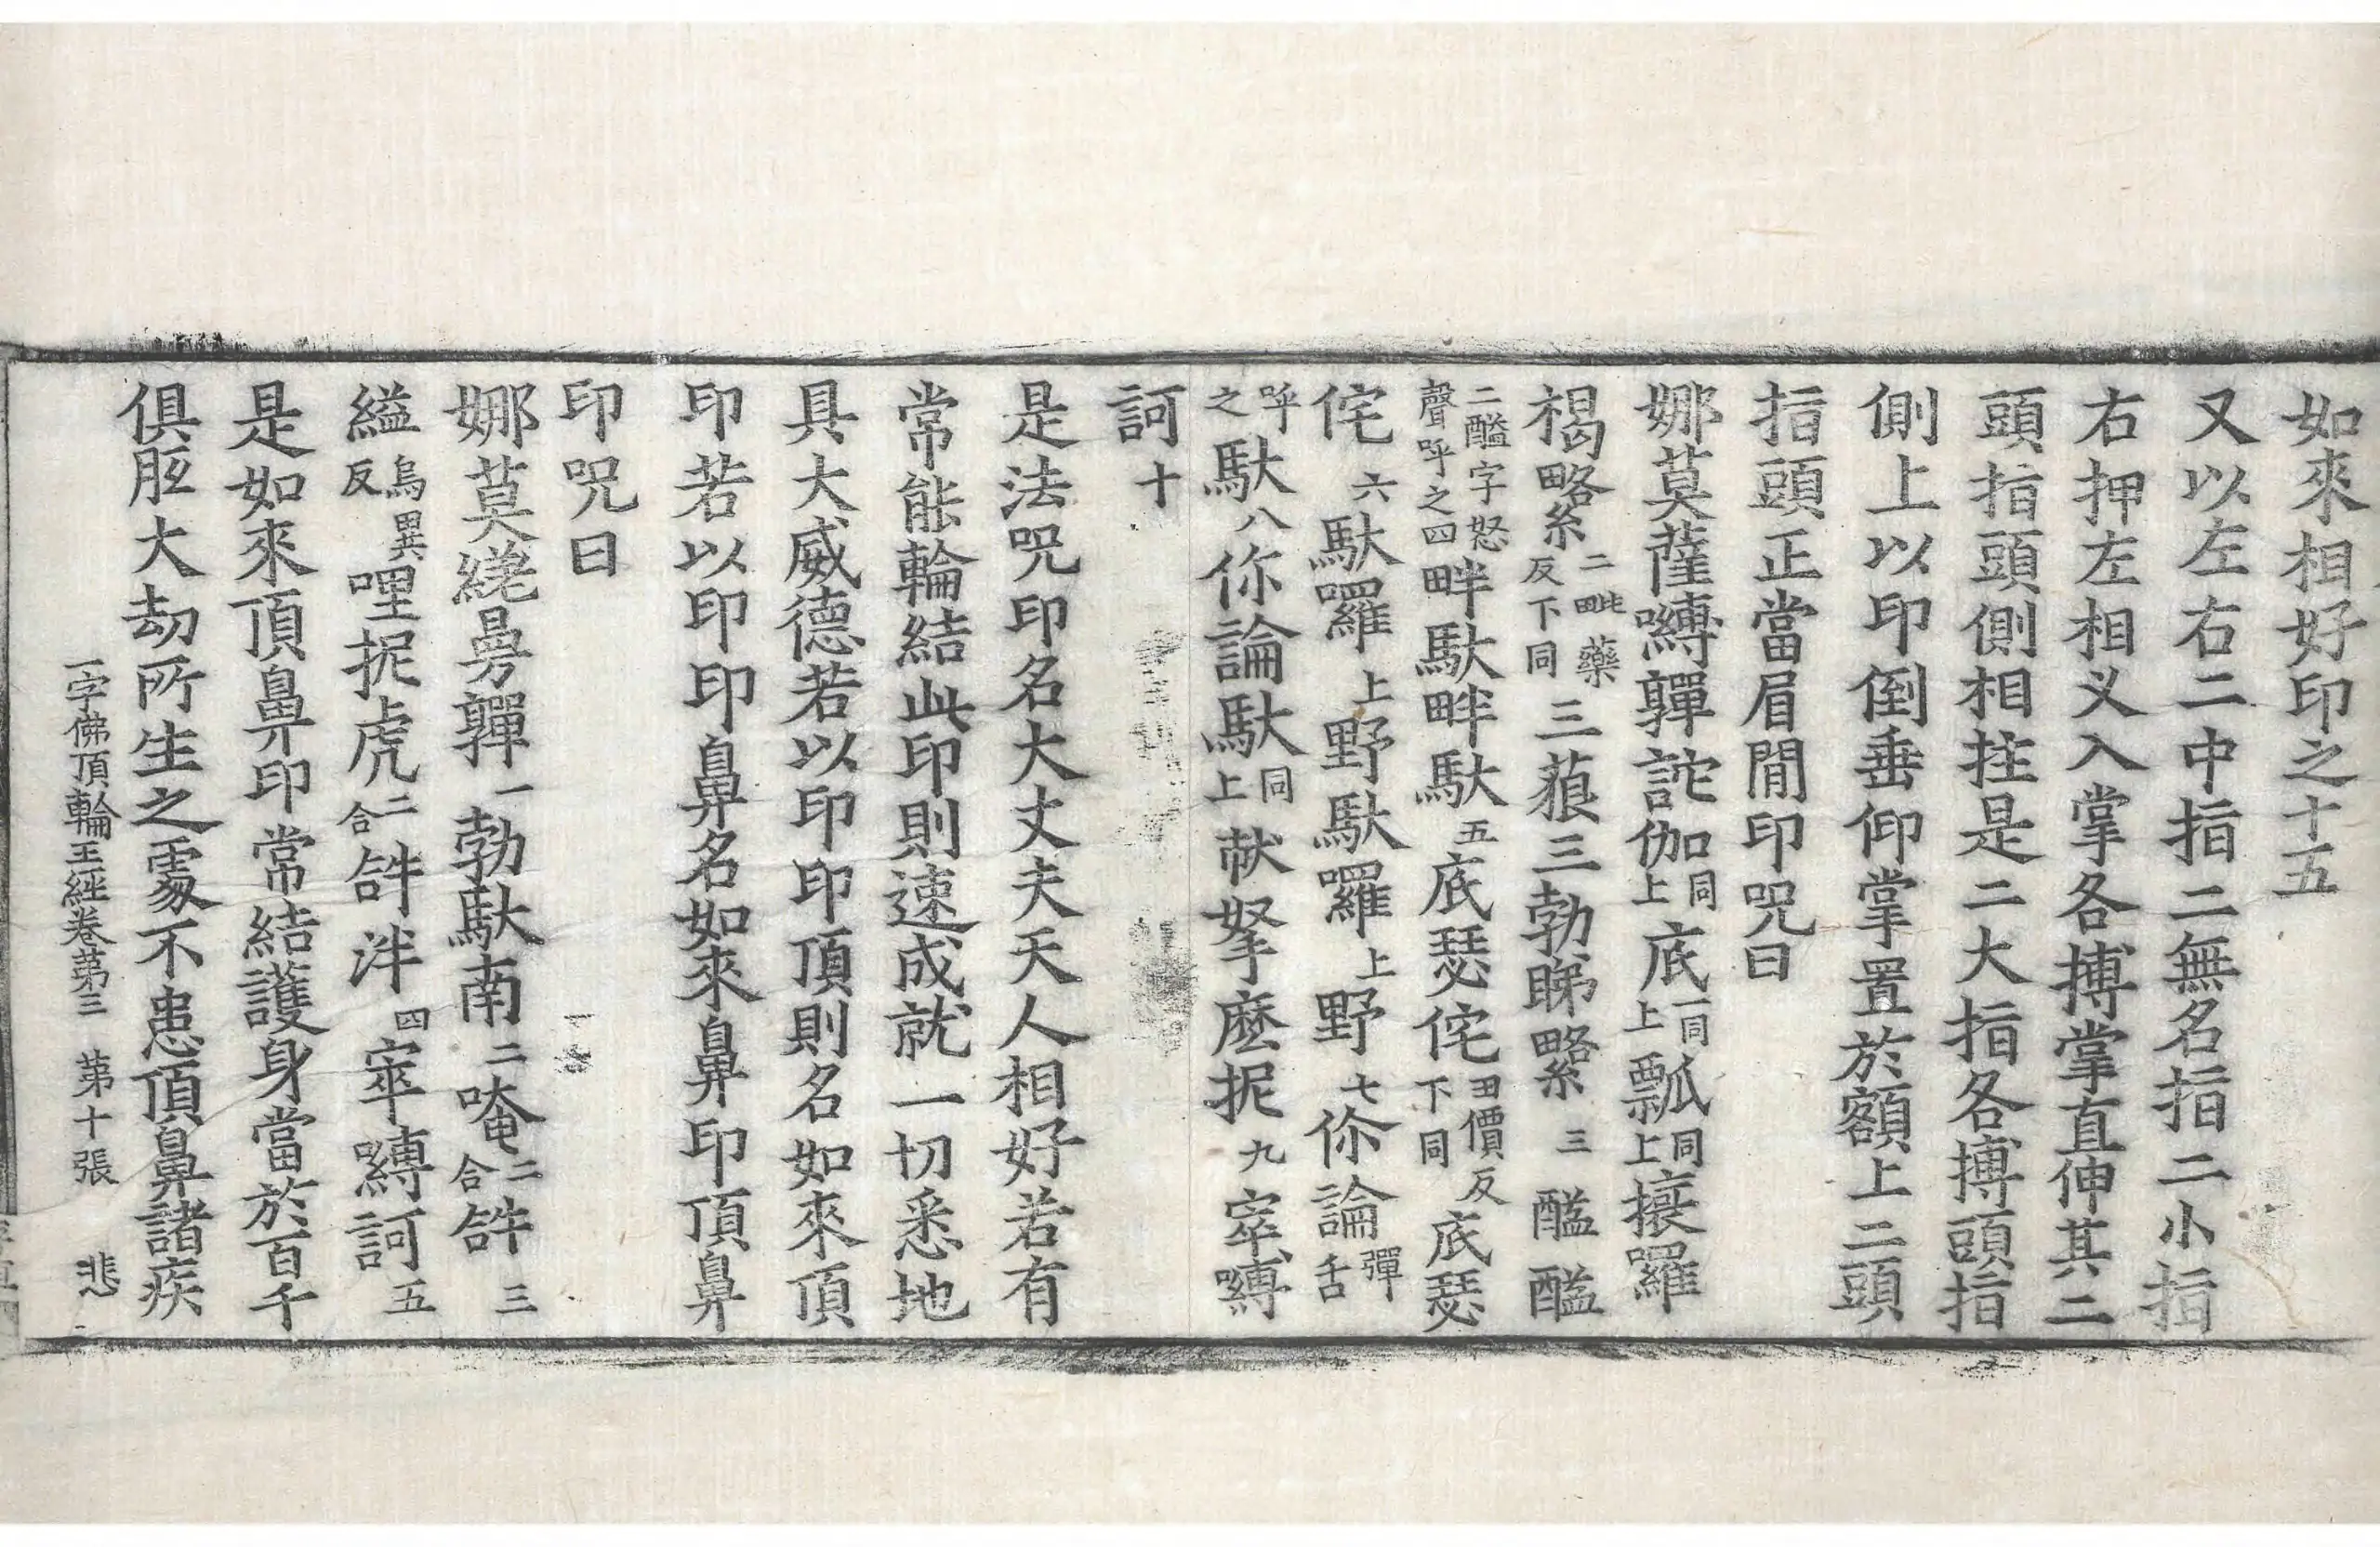 如來相好印之十五
又以左右二中指二無名指二小指
右押左相叉入掌各搏掌直伸其二
頭指頭側相拄是二大指各搏頭指
側上以印倒垂仰掌置於額上二頭
指頭正當眉間印呪曰
娜莫薩嚩嚲詑伽同上底一同上瓢同上攘羅
褐𠸪二毗藥反下同三菝三勃睇𠸪三醯醯
二醯字怒聲呼之四畔馱畔馱五底瑟侘丑價反下同底瑟
侘六馱囉上野馱囉上野七你論彈舌
呼之馱八你論馱同上㰤拏麼抳九窣嚩
訶十
是法呪印名大丈夫天人相好若有
常能輪結此印則速成就一切悉地
具大威德若以印印頂則名如來頂
印若以印印鼻名如來鼻印頂鼻
印呪曰
娜莫縒曼嚲一勃馱南二唵二合𤙖三
縊烏異反哩抳虎二合𤙖泮四窣嚩訶五
是如來頂鼻印常結護身當於百千
俱胝大劫所生之處不患頂鼻諸疾
一字佛頂輪王經卷第三　第十張　悲